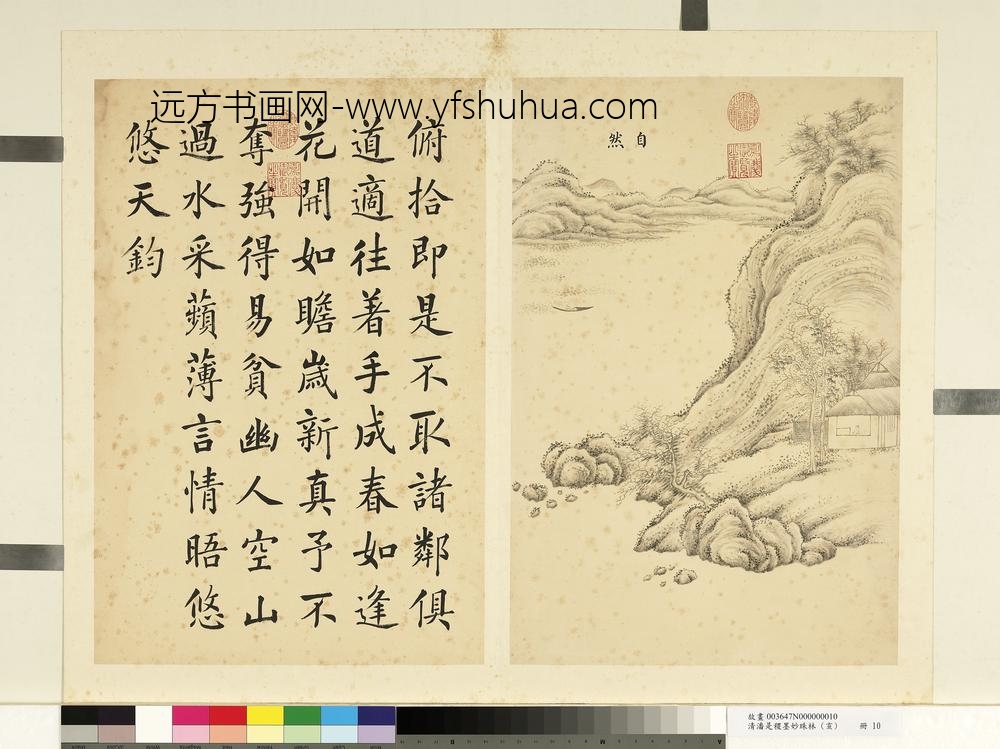 远方书画网-www.yfshuhua.com
自然
俯拾即是不取諸鄰俱
道適往著手成春如逢
花開如瞻歲新真予不
奪強得易貧幽人空山
過水采蘋薄言情晤悠
悠天鈞
故畫 003647N000000010
清潘是稷墨妙珠林（亥） 冊 10